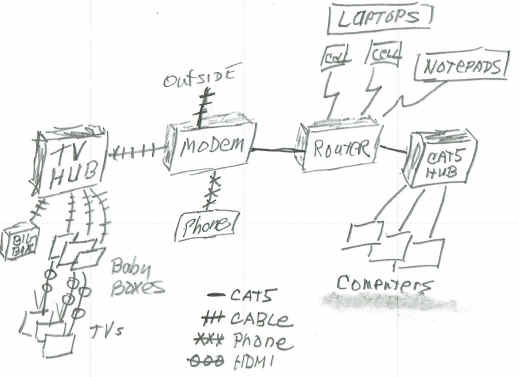 LAPTOPS
OUTSIDE
CELL
CELL
NOTEPADS
TV
HUB
MODEM
ROUTER
CAT5
HUB
Phone
BIG
BOX
Baby
Boxes
TVs
Computers
CAT5
CABLE
Phone
HDMI